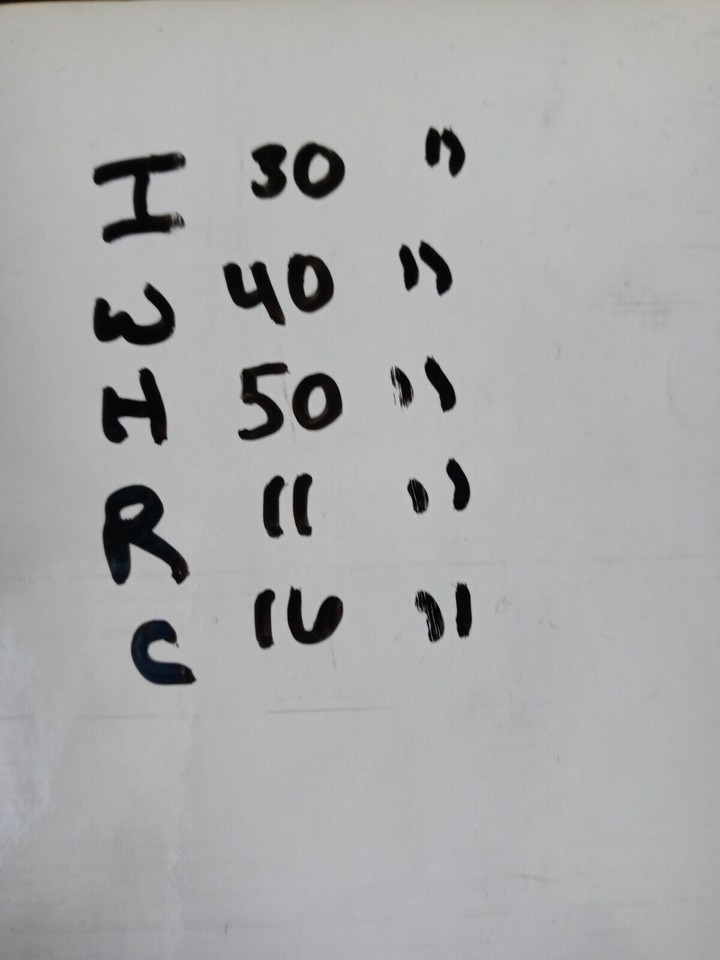 I 30 "
W 40 "
H 50 "
R 11 "
C 16 "